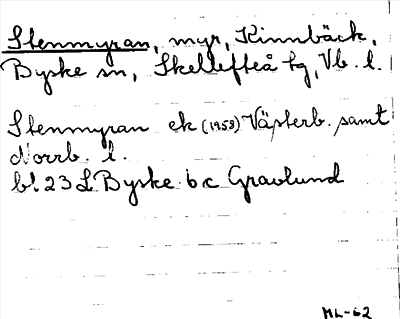 Stenmyran, myr, Kinnbäck,
Byske sn, Skellefteå tg, Vb. l.
Stenmyran ek (1958) Västerb. samt
Norrb. l.
bl 23 L Byske b c Gravlund
ML-62